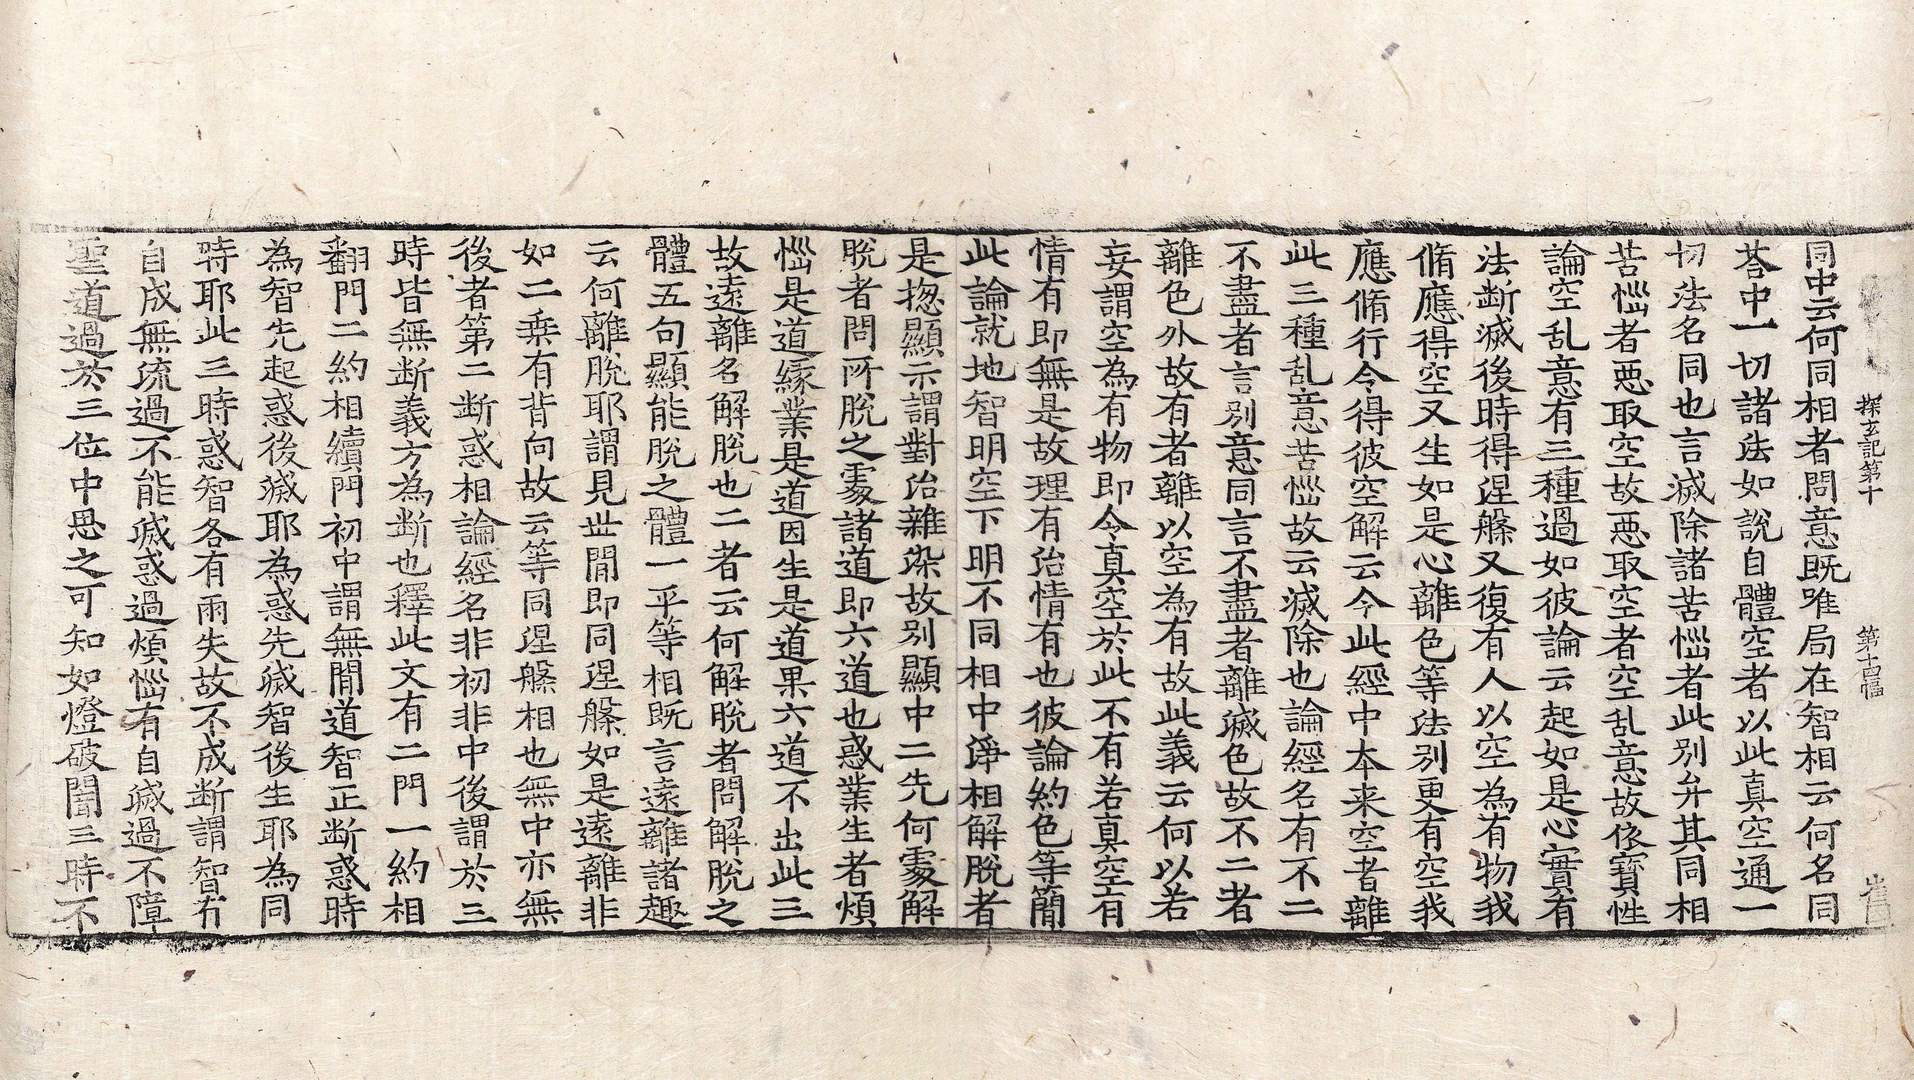 探玄記第十 第十四幅
同中云何同相者問意既唯局在智相云何名同
荅中一切諸法如說自體空者以此真空通一
切法名同也言滅除諸苦惱者此別弁其同相
苦惱者惡取空故惡取空者空乱意故依寶性
論空乱意有三種過如彼論云起如是心實有
法断滅後時得涅槃又復有人以空為有物我
脩應得空又生如是心離色等法別更有空我
應脩行令得彼空解云今此經中本来空者離
此三種乱意苦惱故云滅除也論經名有不二
不盡者言別意同言不盡者離滅色故不二者
離色外故有者離以空為有故此義云何以若
妄謂空為有物即令真空於此不有若真空有
情有即無是故理有治情有也彼論約色等簡
此論就地智明空下明不同相中淨相解脫者
是揔顯示謂對治雜染故別顯中二先何處解
脫者問所脫之處諸道即六道也惑業生者煩
惱是道緣業是道因生是道果六道不出此三
故遠離名解脫也二者云何解脫者問解脫之
體五句顯能脫之體一平等相既言遠離諸趣
云何離脫耶謂見世間即同涅槃如是遠離非
如二乗有背向故云等同涅槃相也無中亦無
後者第二断惑相論經名非初非中後謂於三
時皆無断義方為断也釋此文有二門一約相
翻門二約相續門初中謂無間道智正断惑時
為智先起惑後滅耶為惑先滅智後生耶為同
時耶此三時惑智各有兩失故不成断謂智有
自成無流過不能滅惑過煩惱有自滅過不障
聖道過於三位中思之可知如燈破闇三時不